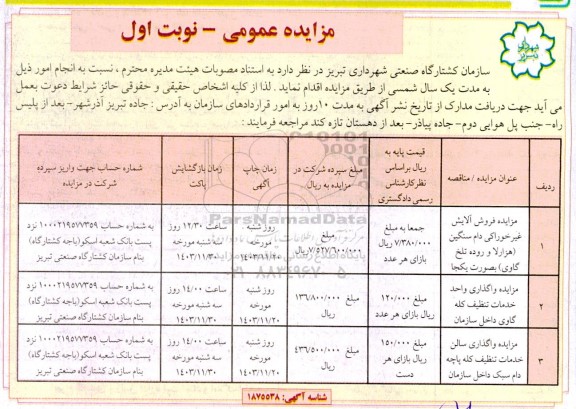 مزایده عمومی - نوبت اول
شهرداری تبریز
سازمان کشتارگاه صنعتی شهرداری تبریز در نظر دارد به استناد مصوبات هیئت مدیره محترم ، نسبت به انجام امور ذیل
به مدت یک سال شمسی از طریق مزایده اقدام نماید . لذا از کلیه اشخاص حقیقی و حقوقی حائز شرایط دعوت بعمل
می آید جهت دریافت مدارک از تاریخ نشر آگهی به مدت ۱۰روز به امور قراردادهای سازمان به آدرس : جاده تبریز آذرشهر- بعد از پلیس
راه- جنب پل هوایی دوم- جاده پیاذر- بعد از دهستان تازه کند مراجعه فرمایند :
ردیف
عنوان مزایده / مناقصه
قیمت پایه به
ریال براساس
نظرکارشناس
رسمی دادگستری
مبلغ سپرده شرکت در
مزایده به ریال)
زمان چاپ
آگهی
زمان بازگشایش
پاکت
شماره حساب جهت واریز سپرده
شرکت در مزایده
۱
مزایده فروش آلایش
غیرخوراکی دام سنگین
(هزارلا و روده تلخ
گاوی) بصورت یکجا
جمعا به مبلغ
۷/۳۸۰/۰۰۰ ریال
بازای هر عدد
مبلغ
۷/۵۲۷/۶۰۰/۰۰۰ ریال
روز شنبه
مورخه
۱۴۰۳/۱۱/۲۰
ساعت ۱۲/۳۰ روز
سه شنبه مورخه
۱۴۰۳/۱۱/۳۰
به شماره حساب ۱۰۰۰۲۱۹۵۷۷۳۵۹ نزد
پست بانک شعبه اسکو(باجه کشتارگاه)
بنام سازمان کشتارگاه صنعتی تبریز
۲
مزایده واگذاری واحد
خدمات تنظیف کله
گاوی داخل سازمان
مبلغ ۱۲۰/۰۰۰
ریال بازای هر عدد
مبلغ ۱۳۹/۸۰۰/۰۰۰
ریال
روز شنبه
مورخه
۱۴۰۳/۱۱/۲۰
ساعت ۱۴/۰۰ روز
سه شنبه مورخه
۱۴۰۳/۱۱/۳۰
به شماره حساب ۱۰۰۰۲۱۹۵۷۷۳۵۹ نزد
پست بانک شعبه اسکو(باجه کشتارگاه)
بنام سازمان کشتارگاه صنعتی تبریز
۳
مزایده واگذاری سالن
خدمات تنظیف کله پاچه
دام سبک داخل سازمان
مبلغ ۱۵۰/۰۰۰
ریال بازای هر
دست
مبلغ ۴۳۶/۵۰۰/۰۰۰
ریال
روز شنبه
مورخه
۱۴۰۳/۱۱/۲۰
ساعت ۱۴/۰۰ روز
سه شنبه مورخه
۱۴۰۳/۱۱/۳۰
به شماره حساب ۱۰۰۰۲۱۹۵۷۷۳۵۹ نزد
پست بانک شعبه اسکو(باجه کشتارگاه)
بنام سازمان کشتارگاه صنعتی تبریز
ParsNamadData
شناسه آگهی: ۱۸۷۵۵۳۸